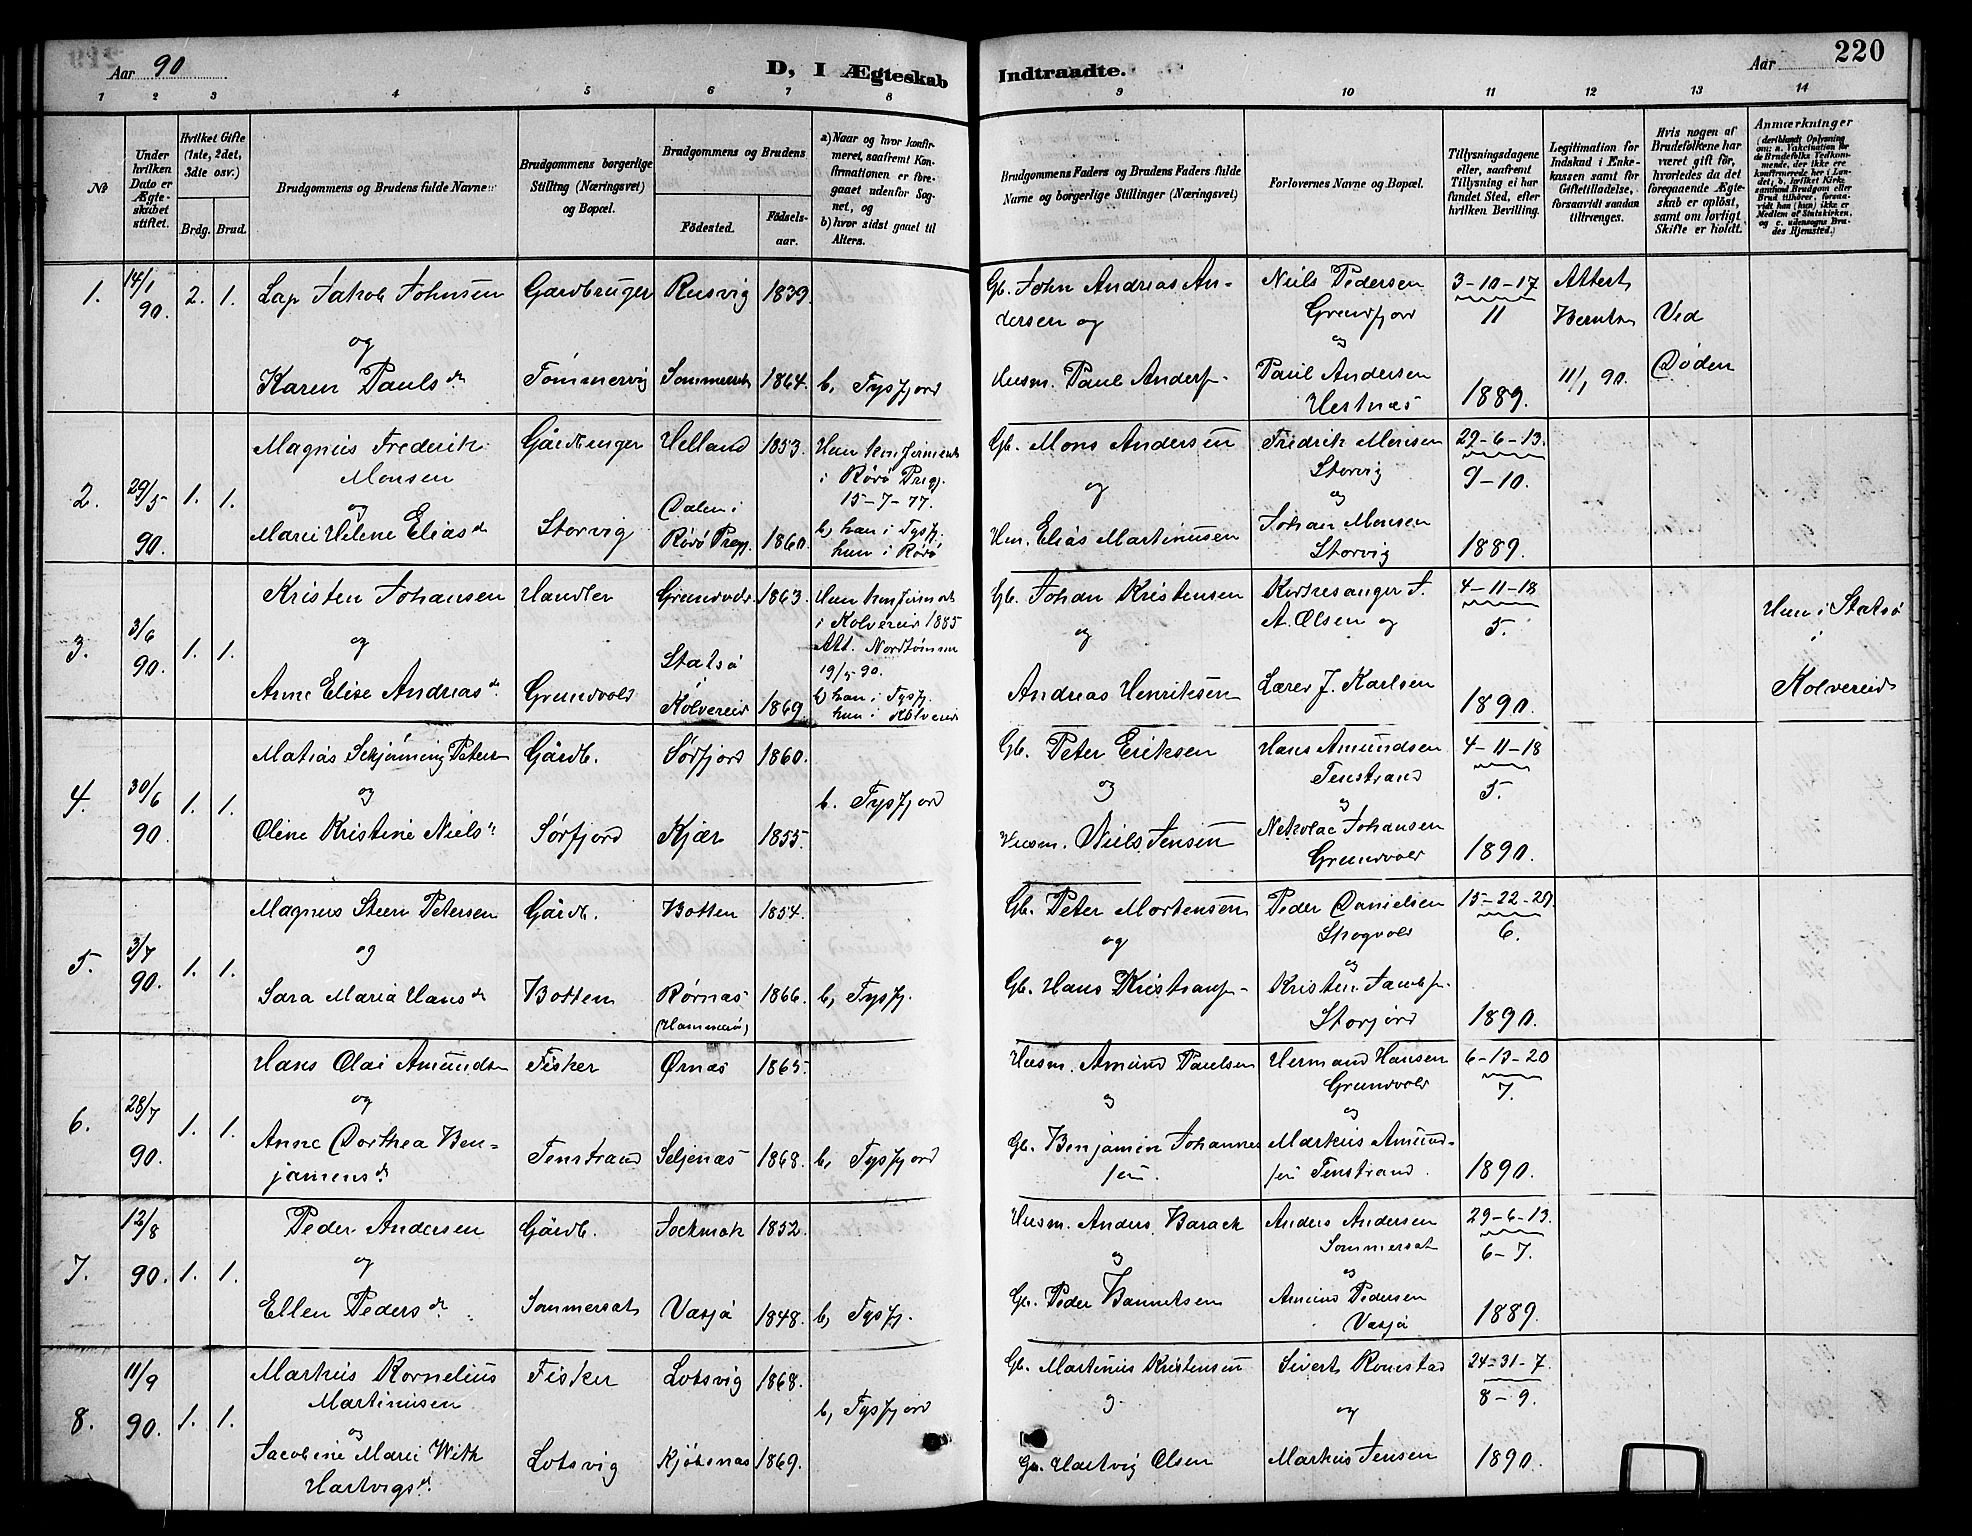 Aar 90
D, I Ægteskab
Indtraadte.
Aar
220
1 2 3 4 5 6 7 8 9 10 11 12 13 14
No
Under hvilken Dato er Ægteskabet stiftet.
Hvilket Gifte (1ste, 2det, 3die osv.)
Brdg. Brud.
Brudgommens og Brudens fulde Navne.
Brudgommens borgerlige Stilling (Næringsvei) og Bopæl.
Brudgommens og Brudens
Fødested.
Fødselsaar.
a) Naar og hvor konfirmeret, saafremt Konfirmationen er foregaaet udenfor Sognet, og
b) hvor sidst gaaet til Alters.
Brudgommens Faders og Brudens Faders fulde Navne og borgerlige Stillinger (Næringsvei)
Forlovernes Navne og Bopæl.
Tillysningsdagene eller, saafremt Tillysning ei har fundet Sted, efter hvilken Bevilling.
Legitimation for Indskud i Enkekassen samt for Giftetilladelse, forsaavidt saadan tiltrænges.
Hvis nogen af Brudefolkene har været gift før, hvorledes da det foregaaende Ægteskab er opløst, samt om lovligt Skifte er holdt.
Anmærkninger
1. 14/1 90. 2. 1.
Lap Jakob Johnsen
og
Karen Pauls d.
Gaardbruger
Tømmervig
Rusvig 1839.
Sommerset 1864.
b, Tysfjord
Gb. John Andreas Andersen og
Husm. Paul Anders.
Niels Pedersen
Grundfjord
og
Paul Andersen
Hestnæs
3-10-17
11
1889.
Attest
11/1 90.
Ved
Døden
2. 29/5 90. 1. 1.
Magnus Frederik
Monsen
og
Marie Helene Elias d
Gårdbruger
Storvig
Helland 1853.
Dalen i
Rørø Præg. 1860.
Hun konfirmeret
i Rørø Prgj.
15-7-77.
b, han i Tysfj.
hun i Rørø
Gb. Mons Andersen
og
Hm. Elias Martinusen
Fredrik Monsen
Storvig
og
Johan Monsen
Storvig
29-6-13.
9-10.
1889.
3. 3/6 90. 1. 1.
Kristen Johansen
og
Anne Elise Andreas d.
Handler
Grundvold
Grundvold 1863.
Statsø
Kolvereid 1869.
Hun konfirmert
i Kolvereid 1885
19/5 90.
b, han i Tysfj.
hun i Kolvereid
Gb. Johan Kristensen
og
Andreas Henriksen
Kirkesanger J.
A. Olsen og
Lærer J. Karlsen
4-11-18
5.
1890.
Hun i Statsø
i
Kolvereid
4. 30/6 90. 1. 1.
Matias Schjønning Peters
og
Oline Kristine Niels d
Gårdb.
Sørfjord
Sørfjord 1860.
Kjær 1855.
b. Tysfjord
Gb. Peter Eriksen
og
Husm. Niels Jensen
Hans Amundsen
Tenstrand
og
Nekolae Johansen
Grundvold
4-11-18
5.
1890.
5. 3/7 90. 1. 1.
Magnus Steen Petersen
og
Sara Maria Hans d
Gårdb.
Botten
Botten 1854.
Rørnæs 1866.
(Hammerø)
b, Tysfj.
Gb. Peter Mortensen
og
Gb. Hans Kristians.
Peder Danielsen
Skogvold
og
Kristen
Storjord
15-22-29.
6.
1890.
6. 28/7 90. 1. 1.
Hans Olai Amundsen
og
Anne Dorthea Benjamens d.
Fisker
Tenstrand
Ørnæs 1865.
Seljenæs 1868.
b, Tysfjord
Husm. Amund Paulsen
og
Gb. Benjamin Johannessen.
Hermand Hansen
Grundvold
og
Markus Amundsen Tenstrand.
6-13-20
7.
1890.
7. 12/8 90. 1. 1.
Peder Andersen
og
Ellen Peders d
Gårdb.
Sommersat
Jockmok 1852.
Vasjå 1848.
b, Tysfj.
Husm. Anders Barack
og
Gb. Peder
Anders Andersen
Sommersat
og
Amund Pedersen
Vasjå
29-6-13.
6-7.
1889.
8. 11/9 90. 1. 1.
Markus Kornelius
Martinusen
og
Jacobine Marie With
Hartvigs d.
Fisker
Lotsvig
Lotsvig 1868.
Kjøbsnæs 1869.
b, Tysfjord
Gb. Martinus Kristensen
og
Gb. Hartvig Olsen
Sivert Ronestad
og
Markus Jensen
24-31-7.
8-9.
1890.